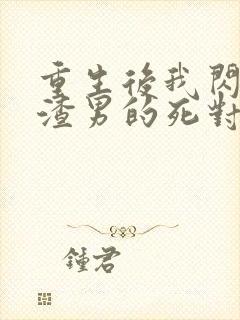 重生後我閃
渣男的死對
鍾君